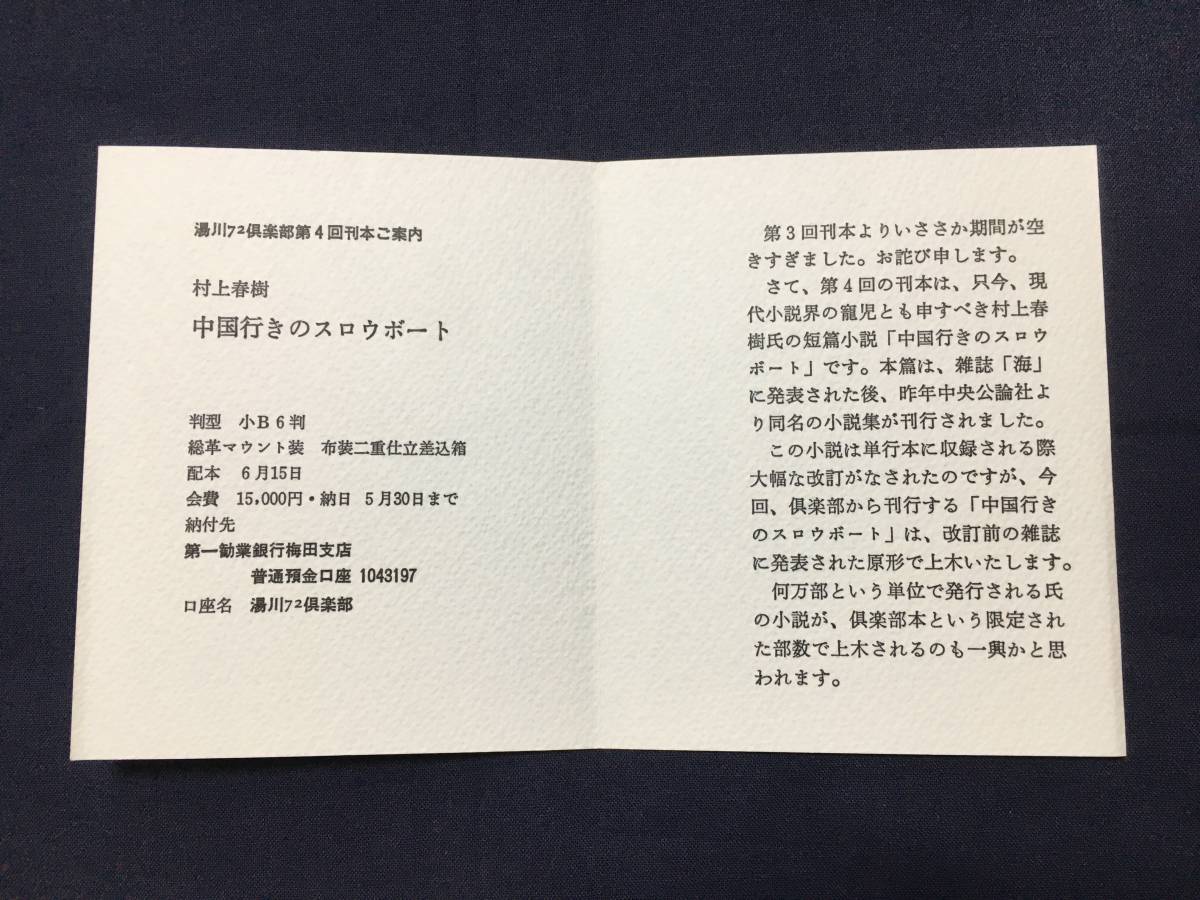 湯川72倶楽部第4回刊本ご案内
村上春樹
中国行きのスロウボート
判型 小B6判
総革マウント装 布装二重仕立差込箱
配本 6月15日
会費 15,000円・納日 5月30日まで
納付先
第一勧業銀行梅田支店
普通預金口座 1043197
口座名 湯川72倶楽部
第3回刊本よりいささか期間が空
きすぎました。お詑び申します。
さて、第4回の刊本は、只今、現
代小説界の寵児とも申すべき村上春
樹氏の短篇小説「中国行きのスロウ
ボート」です。本篇は、雑誌「海」
に発表された後、昨年中央公論社よ
り同名の小説集が刊行されました。
この小説は単行本に収録される際
大幅な改訂がなされたのですが、今
回、倶楽部から刊行する「中国行き
のスロウボート」は、改訂前の雑誌
に発表された原形で上木いたします。
何万部という単位で発行される氏
の小説が、倶楽部本という限定され
た部数で上木されるのも一興かと思
われます。